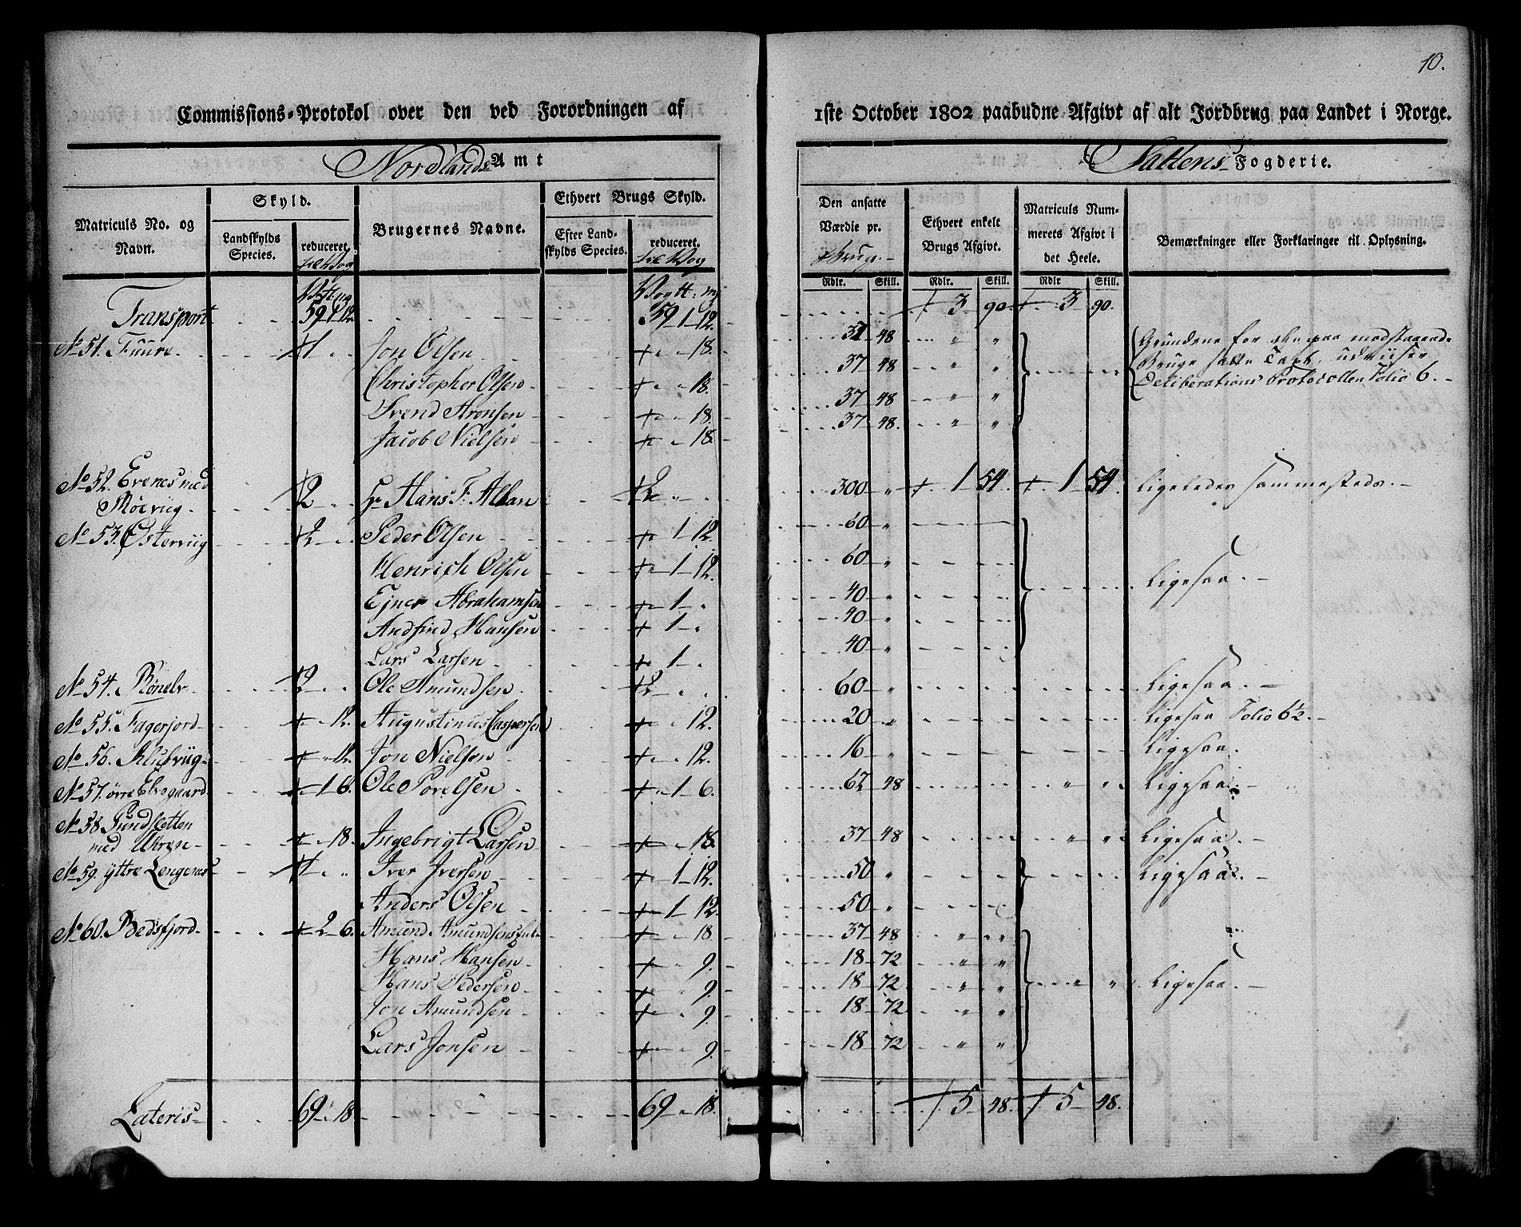 10.
Commissions-Protokol over den ved Forordningen af 1ste October 1802 paabudne Afgivt af alt Jordbrug paa Landet i Norge.
Nordlands Amt
Saltens Fogderie.
Matriculs No. og Navn.
Skyld.
Landskylds Species.
reduceret.
Brugernes Navne.
Ethvert Brugs Skyld.
Efter Landskylds Species.
reduceret.
Den ansatte Værdie pr. Brug.
Ethvert enkelt Brugs Afgivt.
Matriculs Nummerets Afgivt i det Heele.
Bemærkninger eller Forklaringer til Oplysning.
Rdlr. Skill. Rdlr. Skill. Rdlr Skill.
Transport 59 1 12. 59 1 12. 3 90 3 90.
No 51. Fuure 1 Jon Olsen 18. 37 48 Grundene for den paa modstaaende
Christopher Olsen 18. 37 48 Brug satte Taxt, udviiser
Svend Aronsen 18. 37 48 Deliberations Protocollen Folio 6.
Jacob Nielsen 18. 37 48.
No 52. Evenes med
Moevig 2 Hr Hans F. Alban 2 300 1 54. 1 54. Ligeledes sammesteds.
No 53. Østervig 2 Peder Olsen 1 12. 60
Henrich Olsen 1 12. 60 Ligesaa.
Ejner Abrahamsen 1 40
Andfind Hansen 1 40
Lars Larsen 1 40
No 54. Bonelv 2 Ole Amundsen 2 60 Ligesaa.
No 55. Fagerjord 12. Augustinus Caspersen 12. 20 Ligesaa Folio 6½.
No 56. Klubviig 12. Jon Nielsen 12. 16 Ligesaa.
No 57. øvre Elvegaard 1 6. Ole Povelsen 1 6. 62 48 Ligesaa
No 58. Sundsletten
med Uhren 18. Ingebrigt Larsen 18. 37 48 Ligesaa.
No 59. yttre Lengenes 1 Iver Iversen 1 12. 50 Ligesaa.
Anders Olsen 1 12. 50
No 60. Bedsfjord 2 6. Amund Amundsens 18. 37 48
Hans Hansen 9. 18 72
Hans Pedersen 9. 18 72 Ligesaa.
Jon Amundsen 9. 18 72
Lars Jonsen 9. 18 72
Lateris 69 18. 69 18. 5 48. 5 48.